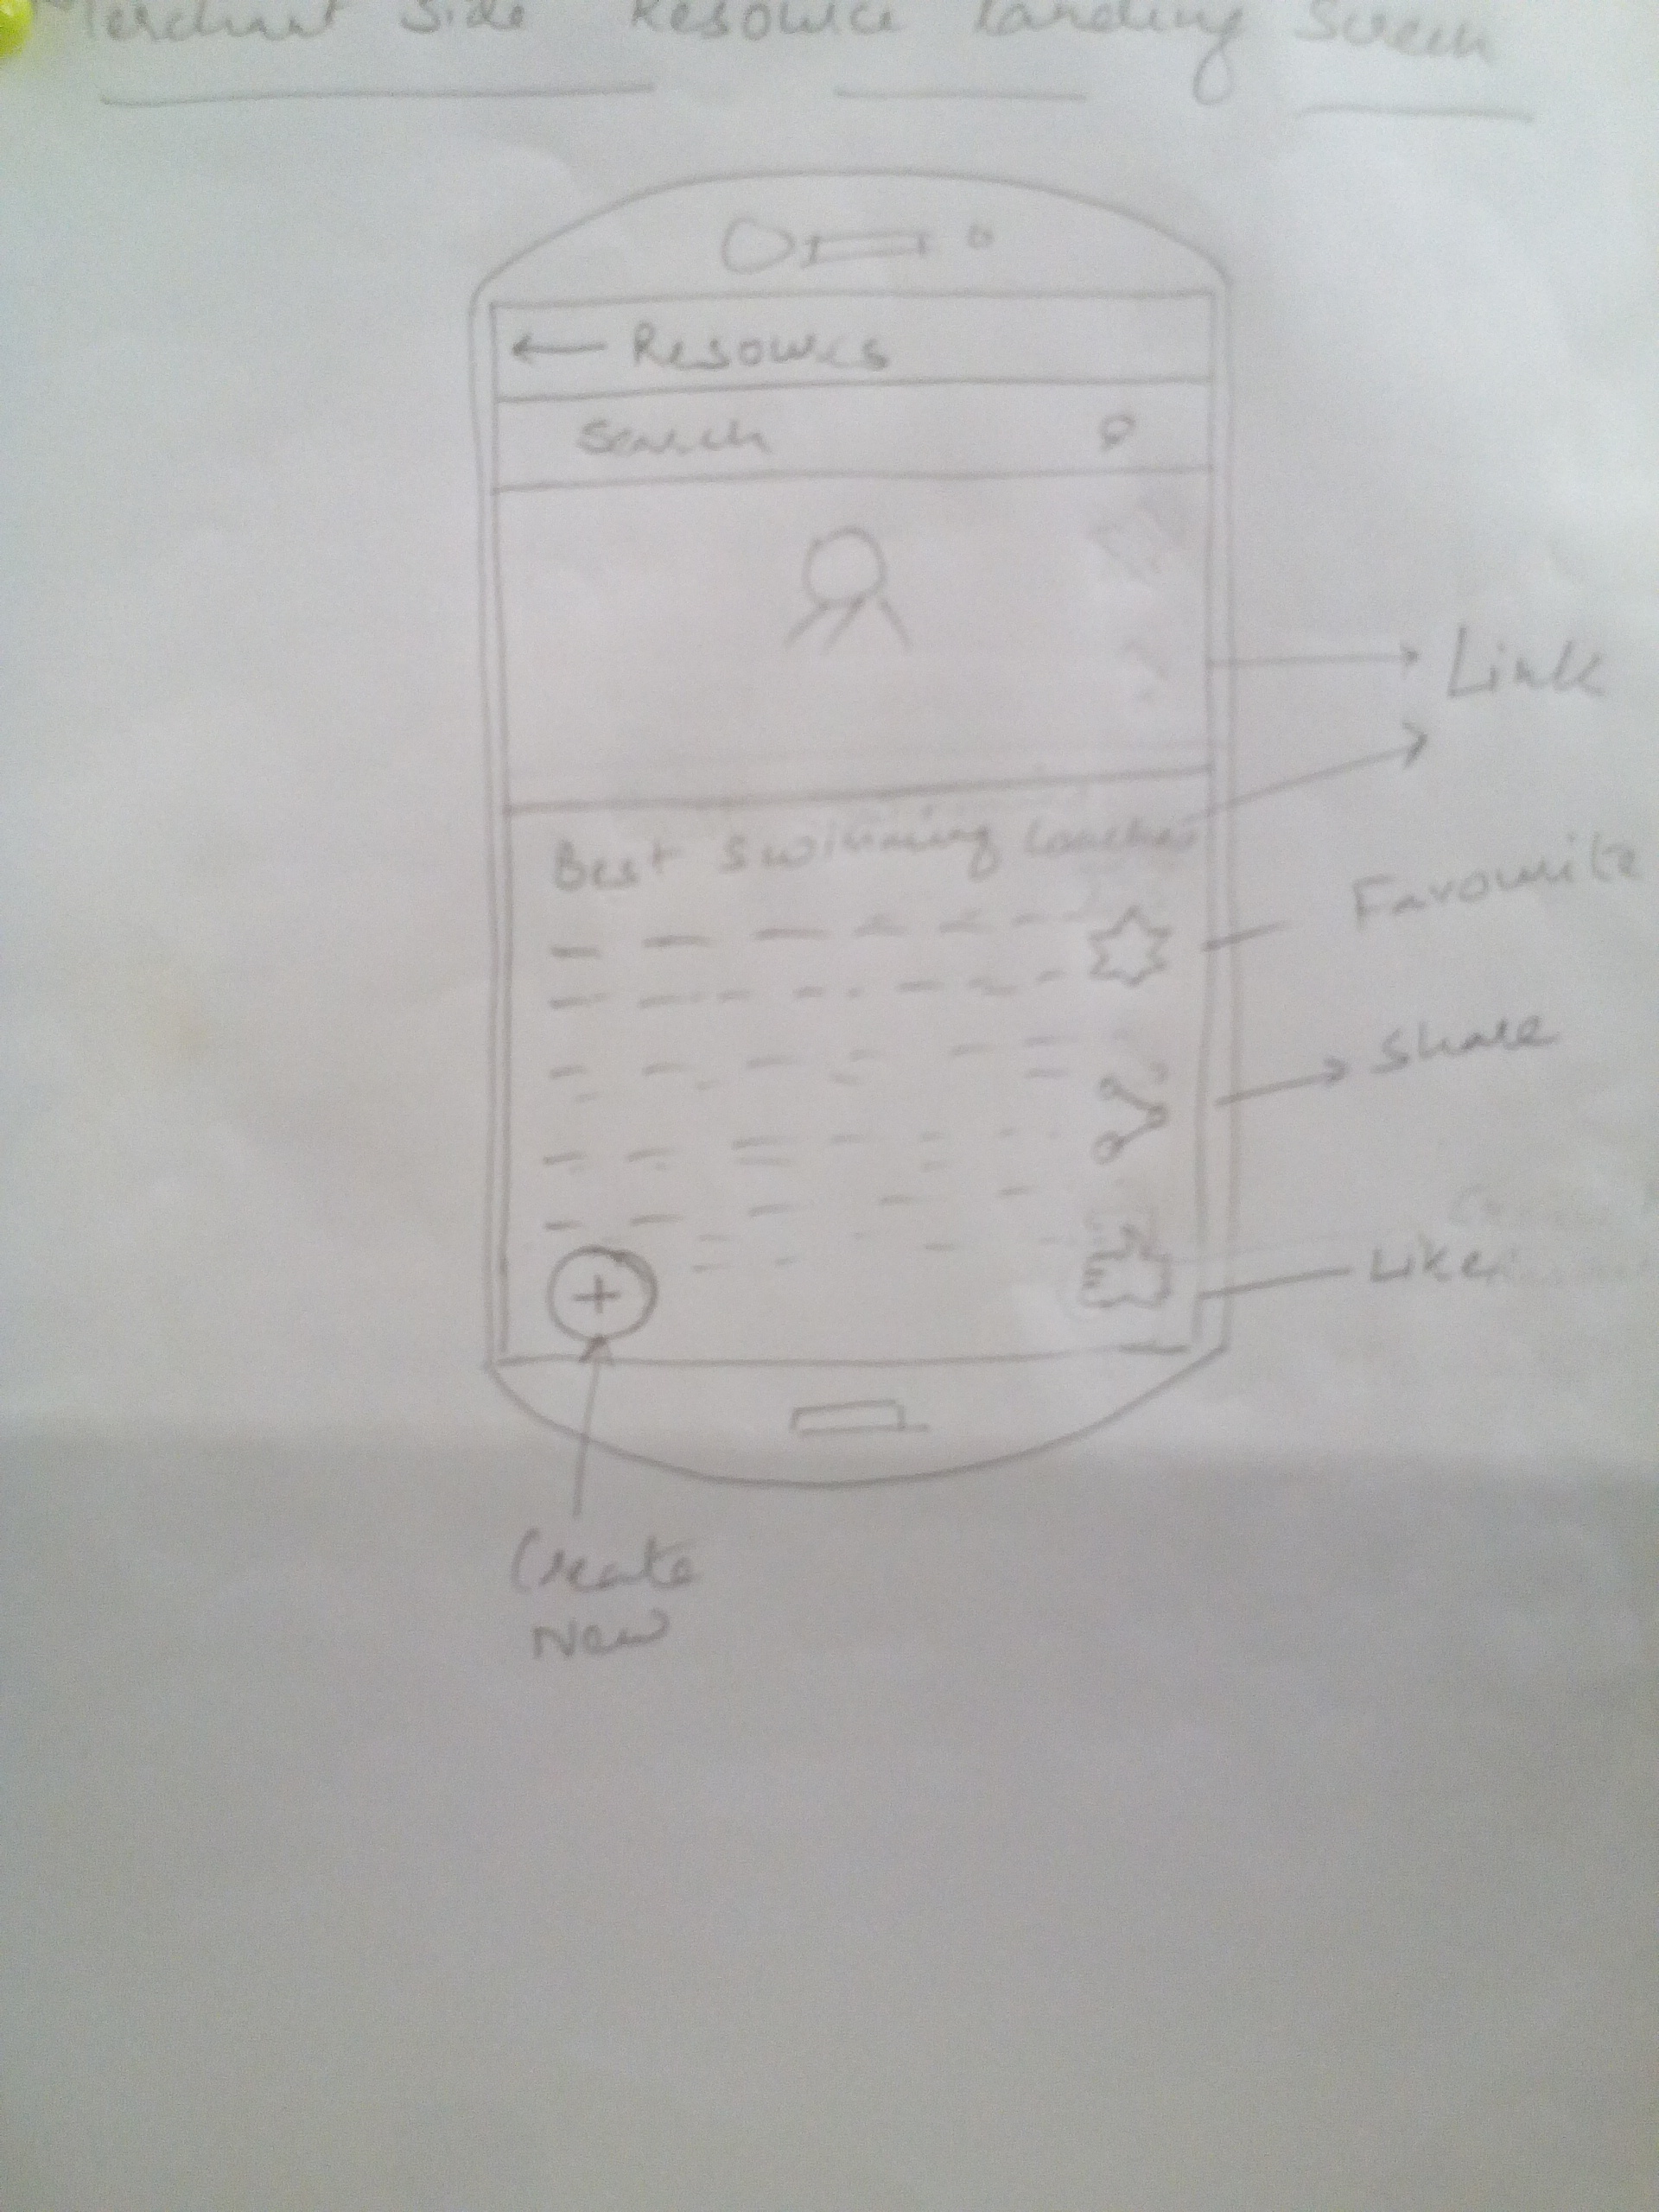 Merchant Side Resource Landing Screen
← Resources
Search
Link
Best Swimming Coaches
Favourite
Share
Like
+
Create
New